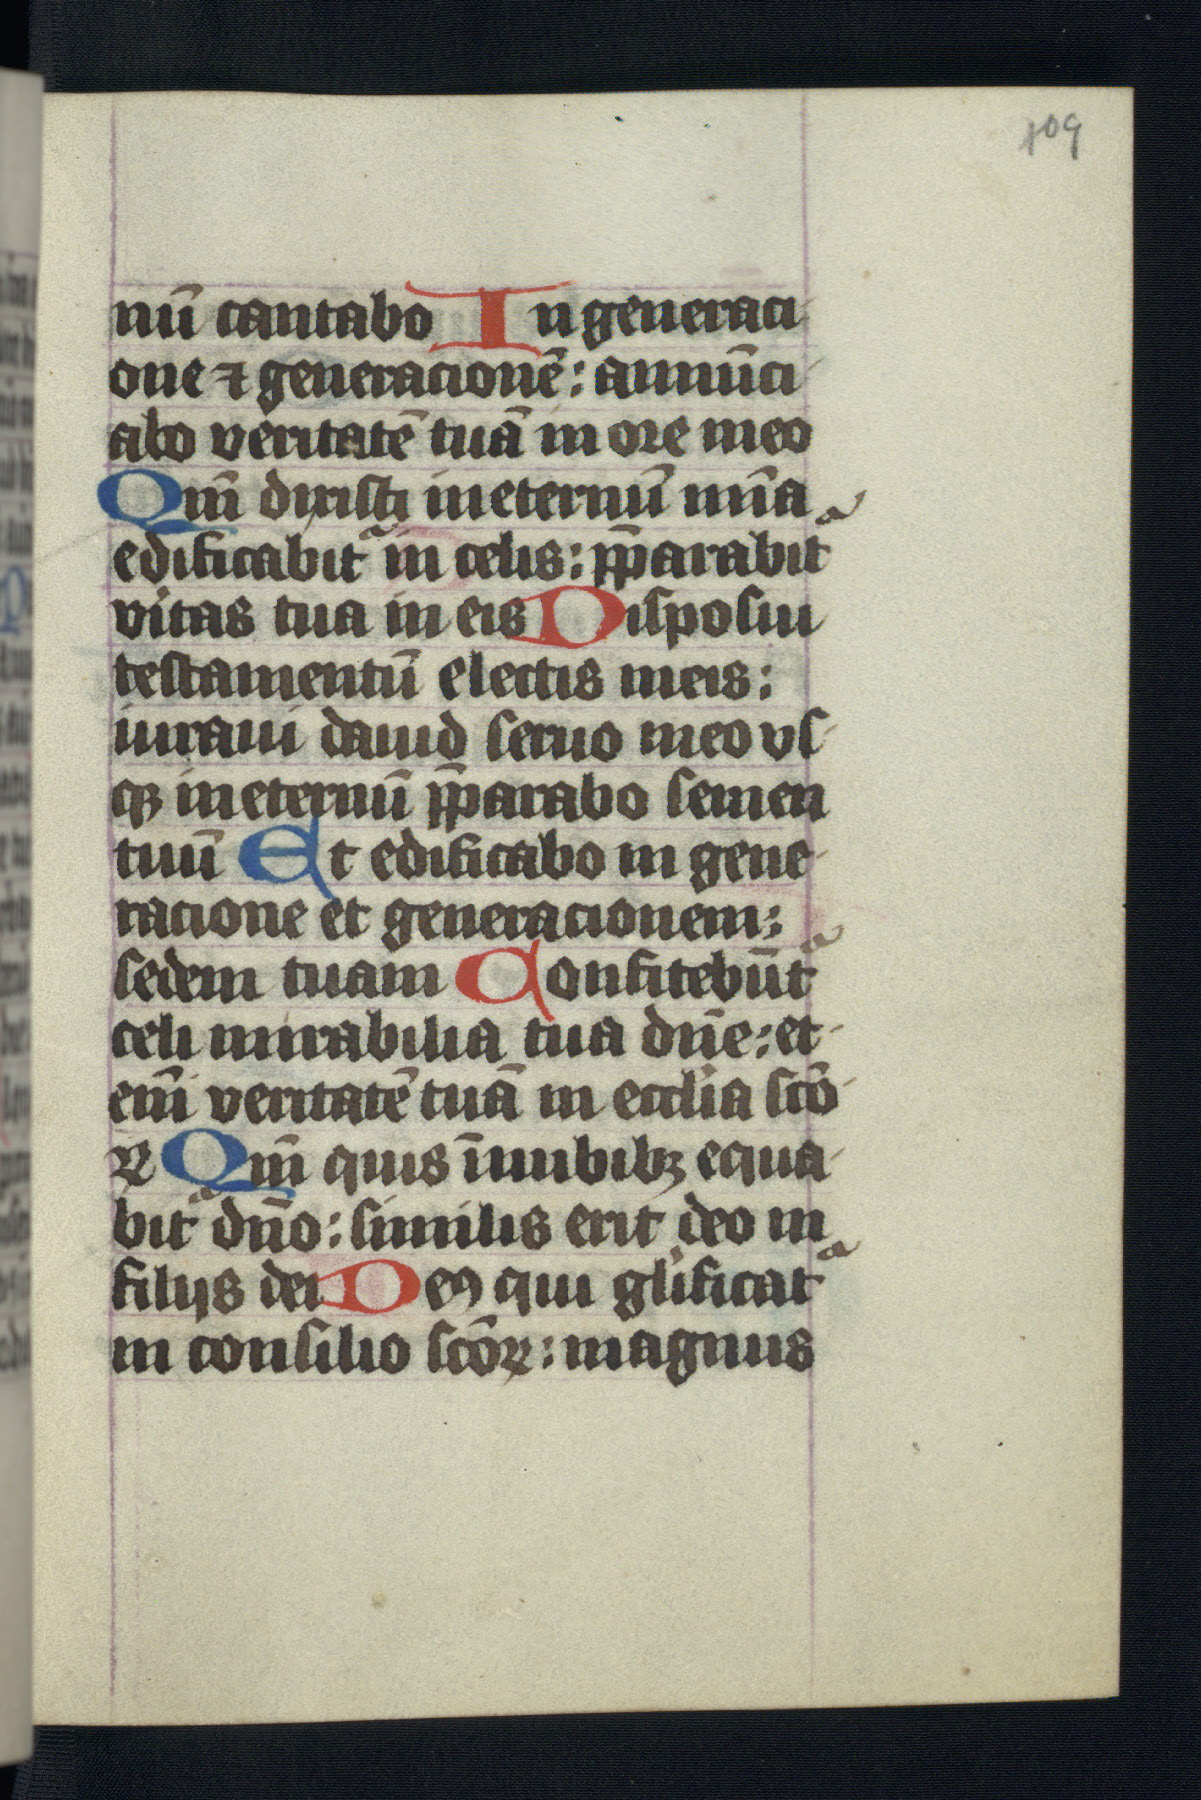 109
nū cantabo In generaci
one ⁊ generacionē: annūci
abo veritatē tuā in ore meo
Qm̄ dixisti in eternū mīa
edificabitᵃ in celis: p̄parabit
vitas tua in eis Disposui
testamentū electis meis:
iuraui dauid seruo meo vs
qꝫ in eternū p̄parabo semen
tuū Et edificabo in gene
racione et generacionem:
sedem tuam Confitebūtᵃ
celi mirabilia tua dn̄e: et
em̄ veritatē tuā in ecclīa scō
ꝝ Qm̄ quis ī nubibꝫ equa
bitᵃ dn̄o: similis erit deo in
filijs dei Deꝰ qui gl̄ificatᵃ
in consilio scōꝝ: magnus